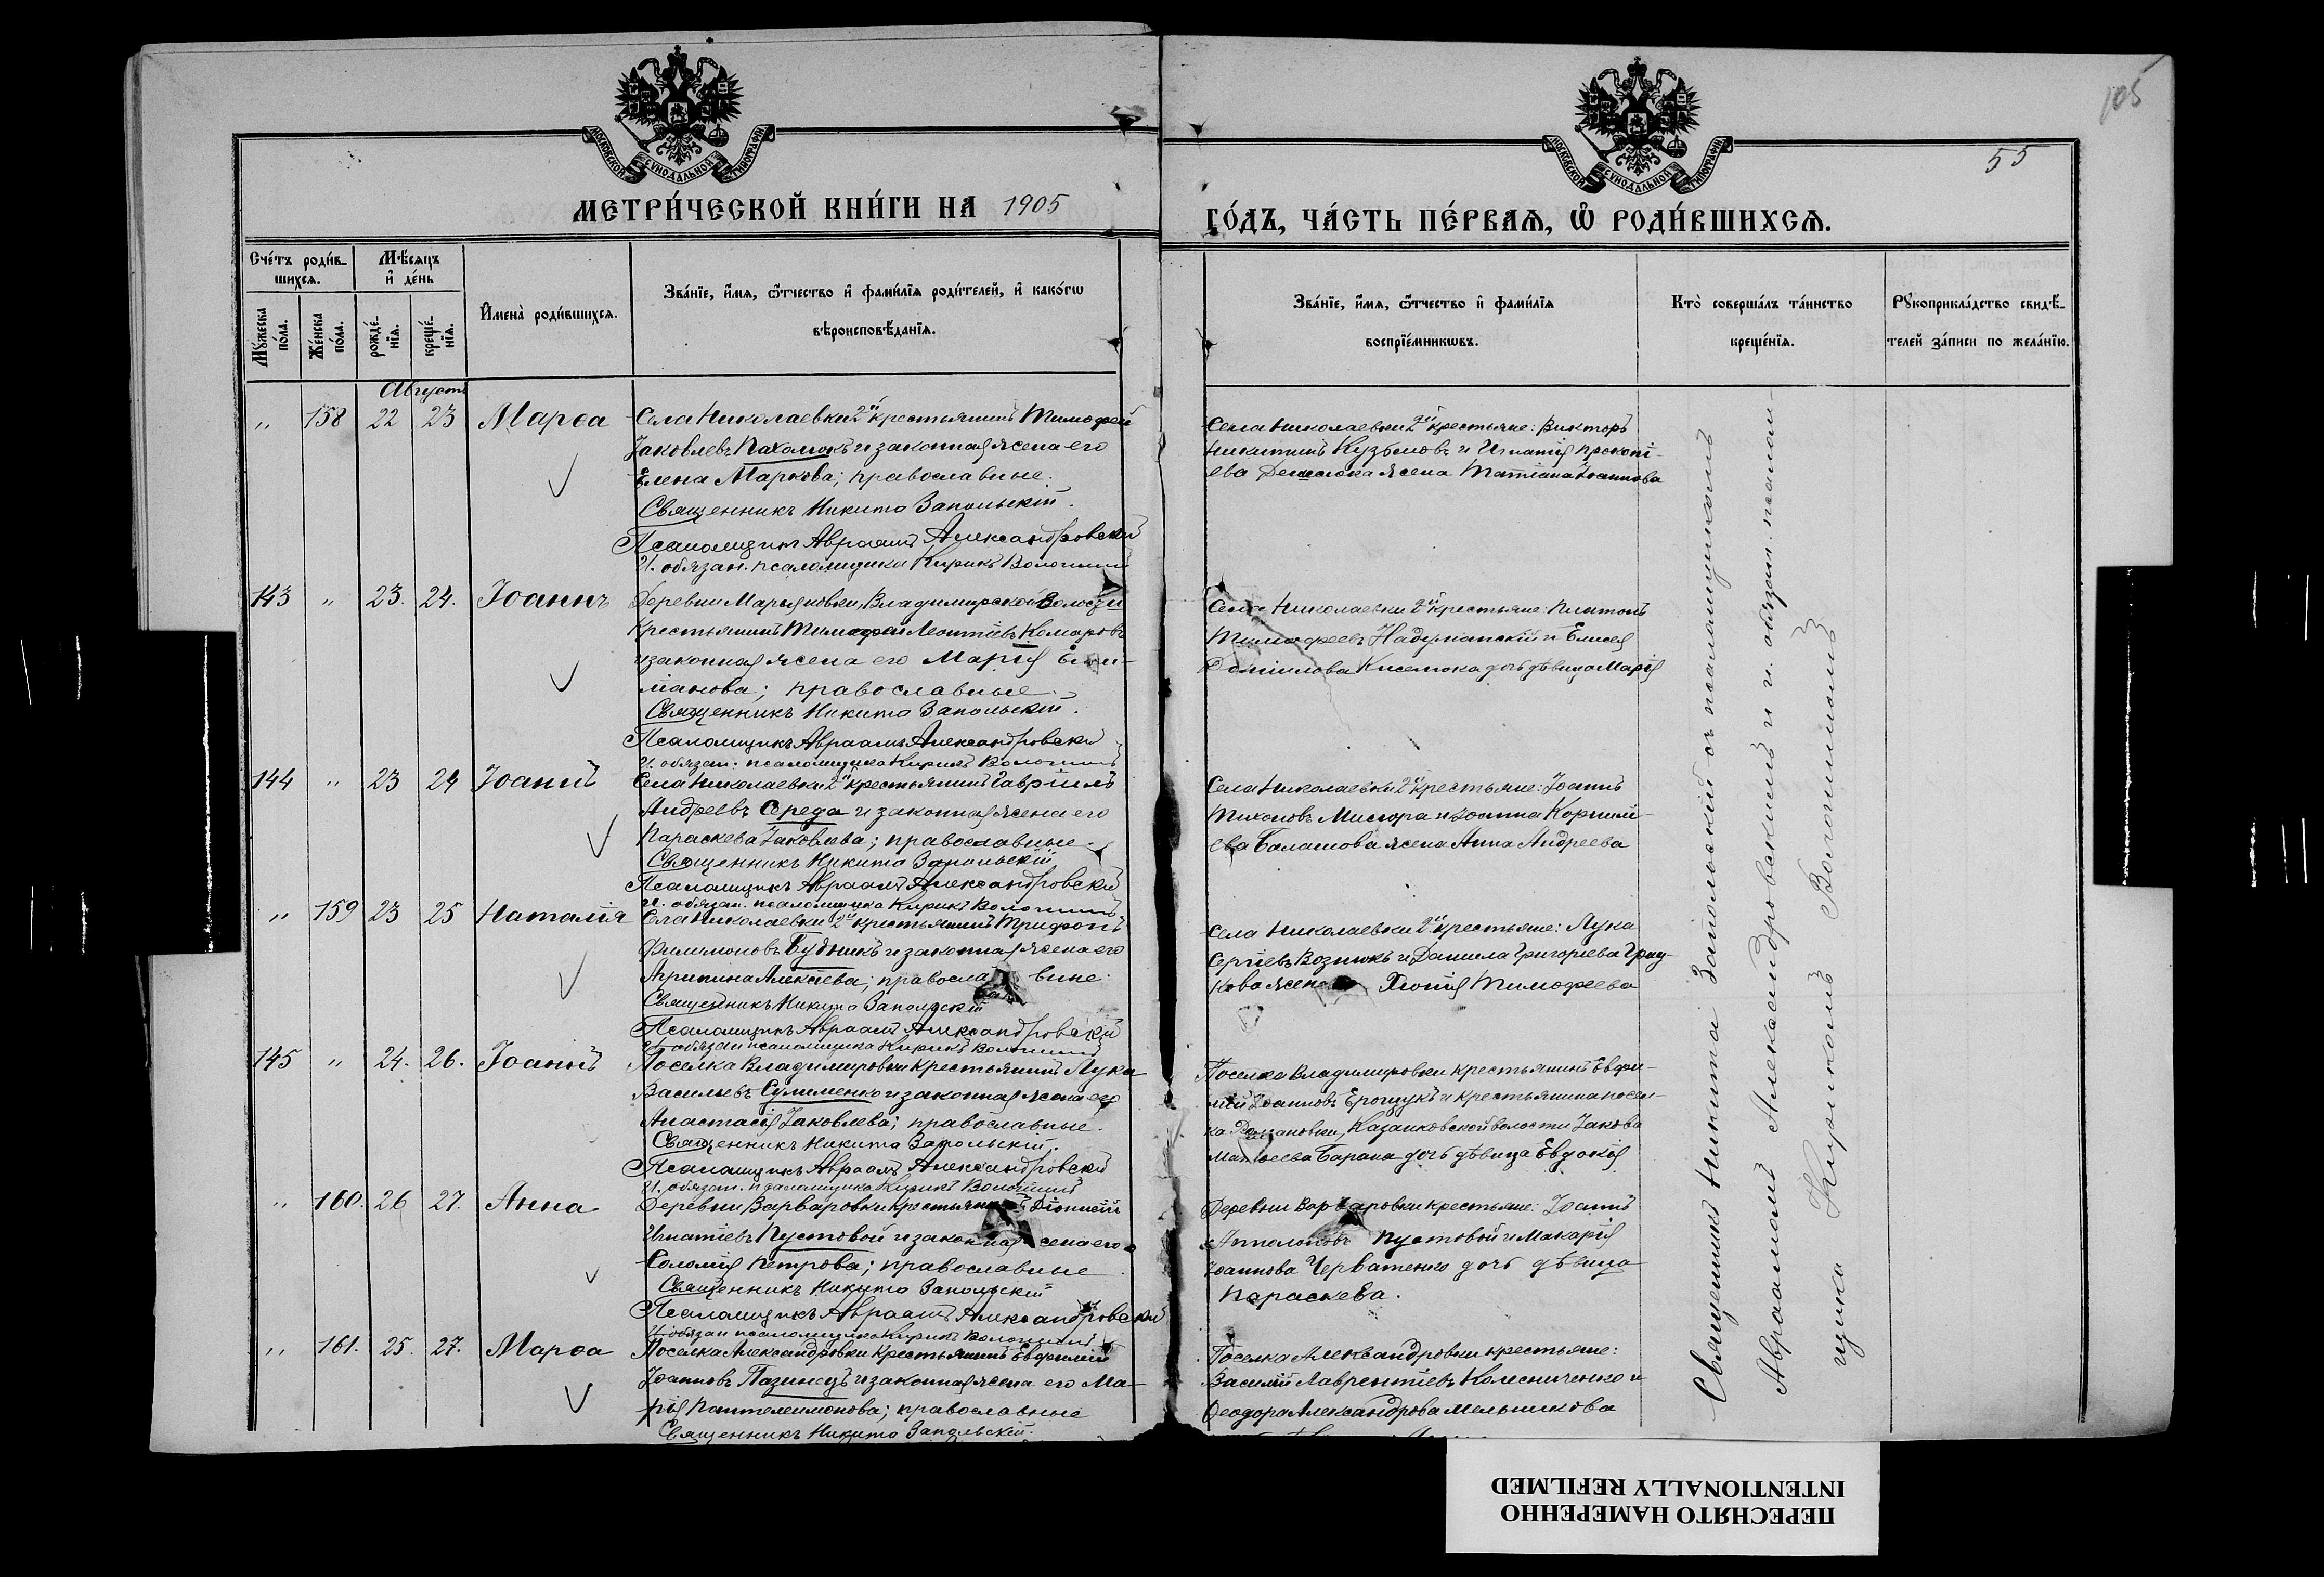 105
55
МОСКОВСКОЙ СѴНОДАЛЬНОЙ ТИПОГРАФІИ
МОСКОВСКОЙ СѴНОДАЛЬНОЙ ТИПОГРАФІИ
МЕТРИ́ЧЕСКОЙ КНИ́ГИ НА 1905
ГО́ДЪ, ЧА́СТЬ ПЕ́РВАѦ, Ѡ҆ РОДИ́ВШИХСѦ.
Сче́тъ роди́в-
шихсѧ.
Мꙋ́жеска по́ла.
Же́нска по́ла.
Мѣ́сѧцъ и҆ де́нь
рожде́-нїѧ.
креще́-нїѧ.
И҆мена̀ роди́вшихсѧ.
Зва́нїе, и҆́мѧ, ѻ҆́тчество и҆ фами́лїѧ роди́телей, и҆ како́гѡ
вѣроисповѣ́данїѧ.
Зва́нїе, и҆́мѧ, ѻ҆́тчество и҆ фами́лїѧ
воспрїе́мникѡвъ.
Кто̀ соверша́лъ та́инство
креще́нїѧ.
Рꙋкоприкла́дство свидѣ́-
телей за́писи по жела́нїю.
Августъ
" 158 22 23 Марѳа
Села Николаевки 2й крестьянинъ Тимофей
Іаковлевъ Пахолюкъ и законная жена его
Елена Маркова; православные.
Священникъ Никита Запольскій.
Псаломщикъ Авраамъ Александровскій
И. обязан. псаломщика Кирикъ Волошинъ
Села Николаевки 2й крестьяне: Викторъ
Никитинъ Кузьмовъ и Игнатія Прокопі-
ева жена Татіана Іоаннова
143 " 23. 24. Іоаннъ
Деревни Марьяновки, Владимирской Волости
крестьянинъ Тимофей Леонтіевъ Комаровъ
и законная жена его Марія Еми-
ліанова; православные.
Священникъ Никита Запольскій.
Псаломщикъ Авраамъ Александровскій
И. обязан. псаломщика Кирикъ Волошинъ
Села Николаевки 2й крестьяне: Платонъ
Тимофеевъ и Елисея
Даніилова Киселюка дочь дѣвица Марія
144 " 23 24 Іоаннъ
Села Николаевки 2й крестьянинъ Гавріилъ
Андреевъ Середа и законная жена его
Параскева Іаковлева; православные.
Священникъ Никита Запольскій
Псаломщикъ Авраамъ Александровскій
И. обязан. псаломщика Кирикъ Волошинъ
Села Николаевки 2й крестьяне: Іоаннъ
Тихоновъ Мисюра и Іоанна Корнилі-
ева Балашова жена Анна Андреева
" 159 23 25 Наталія
Села Николаевки 2й крестьянинъ Трифонъ
Филимоновъ Будникъ и законная жена его
Агрипина Алексѣева; православные.
Священникъ Никита Запольскій
Псаломщикъ Авраамъ Александровскій
И. обязан. псаломщика Кирикъ Волошинъ
Села Николаевки 2й крестьяне: Лука
Сергіевъ Вознюкъ и Даніила Григорьева
жена Хіонія Тимофеева
145 " 24. 26. Іоаннъ
Поселка Владимировки крестьянинъ Лука
Васильевъ Сулименко и законная жена его
Анастасія Іаковлева; православные.
Священникъ Никита Запольскій.
Псаломщикъ Авраамъ Александровскій
И. обязан. псаломщика Кирикъ Волошинъ
Поселка Владимировки крестьянинъ Евфи-
мій Іоанновъ Ерощукъ и крестьянина посел-
ка Казанковской волости Іакова
Матѳеева Барана дочь дѣвица Евдокія
" 160. 26 27. Анна
Деревни Варваровки крестьянинъ Діонисій
Игнатіевъ Пустовой и законная жена его
Соломія Петрова; православные.
Священникъ Никита Запольскій
Псаломщикъ Авраамъ Александровскій
И. обязан. псаломщика Кирикъ Волошинъ
Деревни Варваровки крестьяне: Іоаннъ
Пустовой и Макарія
Іоаннова Черватенко дочь дѣвица
Параскева.
" 161. 25. 27. Марѳа
Поселка Александровки крестьянинъ Евфимій
Іоанновъ Пазинецъ и законная жена его Ма-
рія Пантелеимонова; православные
Священникъ Никита Запольскій.
Поселка Александровки крестьяне:
Василій Лаврентіевъ Колесниченко и
Ѳеодора Александрова Мельникова
Священникъ Никита Запольскій съ псаломщикомъ
Авраамомъ Александровскимъ и и. обязан. псалом-
щика Кирикомъ Волошинымъ
ПЕРЕСНЯТО НАМЕРЕННО
INTENTIONALLY REFILMED